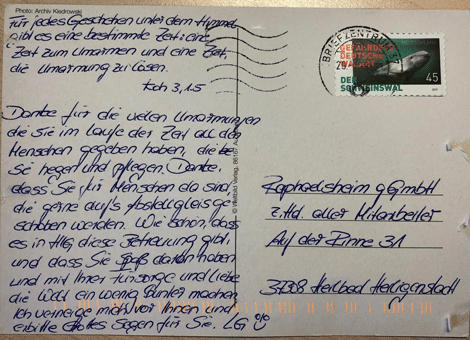 Photo: Archiv Kiedrowski
Für jedes Geschehen unter dem Himmel
gibt es eine bestimmte Zeit: eine
Zeit zum Umarmen und eine Zeit,
die Umarmung zu lösen.
Koh 3,1.5
Danke für die vielen Umarmungen
die Sie im Laufe der Zeit all den
Menschen gegeben haben, die
Sie hegen und pflegen. Danke,
dass Sie für Menschen da sind,
die gerne auf's Abstellgleis ge-
schoben werden. Wie schön, dass
es in Hlg diese Betreuung gibt,
und dass Sie Spaß daran haben
und mit Ihrer Fürsorge und Liebe
die Welt ein wenig bunter machen.
Ich verneige mich vor Ihnen und
erbitte Gottes Segen für Sie. LG
BRIEFZENTRUM
GEFÄHRDETE
DEUTSCHE
WALART
DER
SCHWEINSWAL
45
Raphaelsheim gGmbH
z.Hd. aller Mitarbeiter
Auf der Rinne 31
37308 Heilbad Heiligenstadt